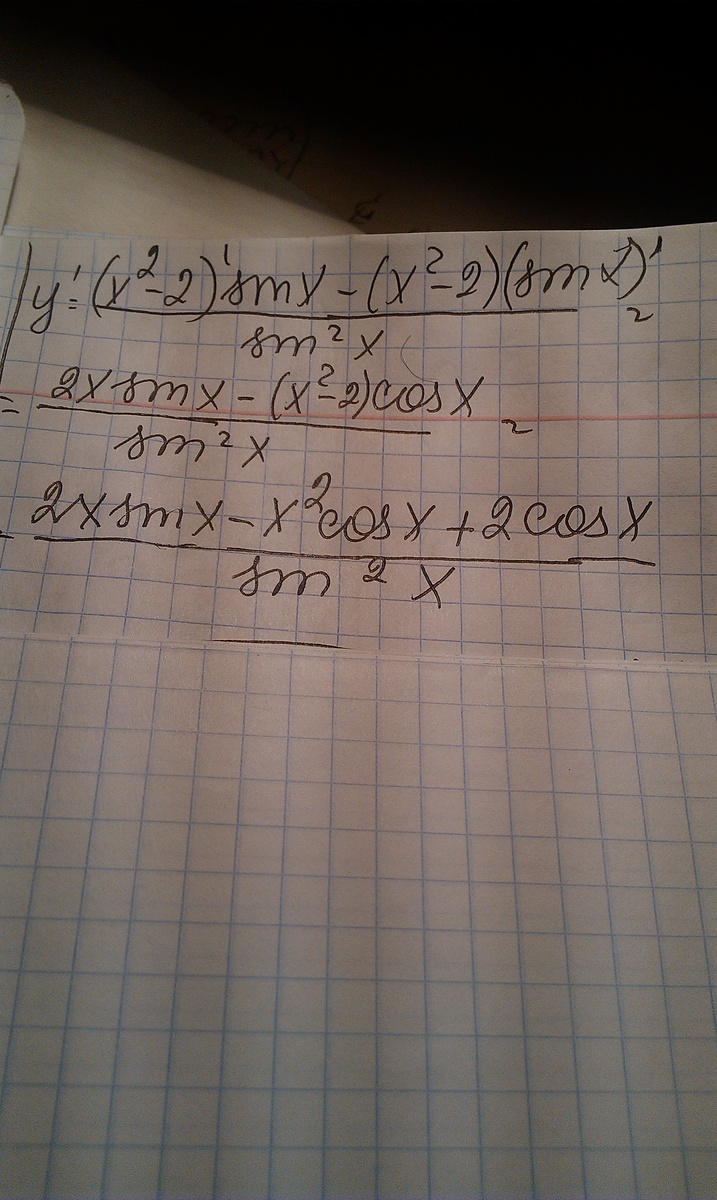 y' = ((x²-2)' sin x - (x²-2)(sin x)') / (sin² x) =
= (2x sin x - (x²-2) cos x) / (sin² x) =
= (2x sin x - x² cos x + 2 cos x) / (sin² x)